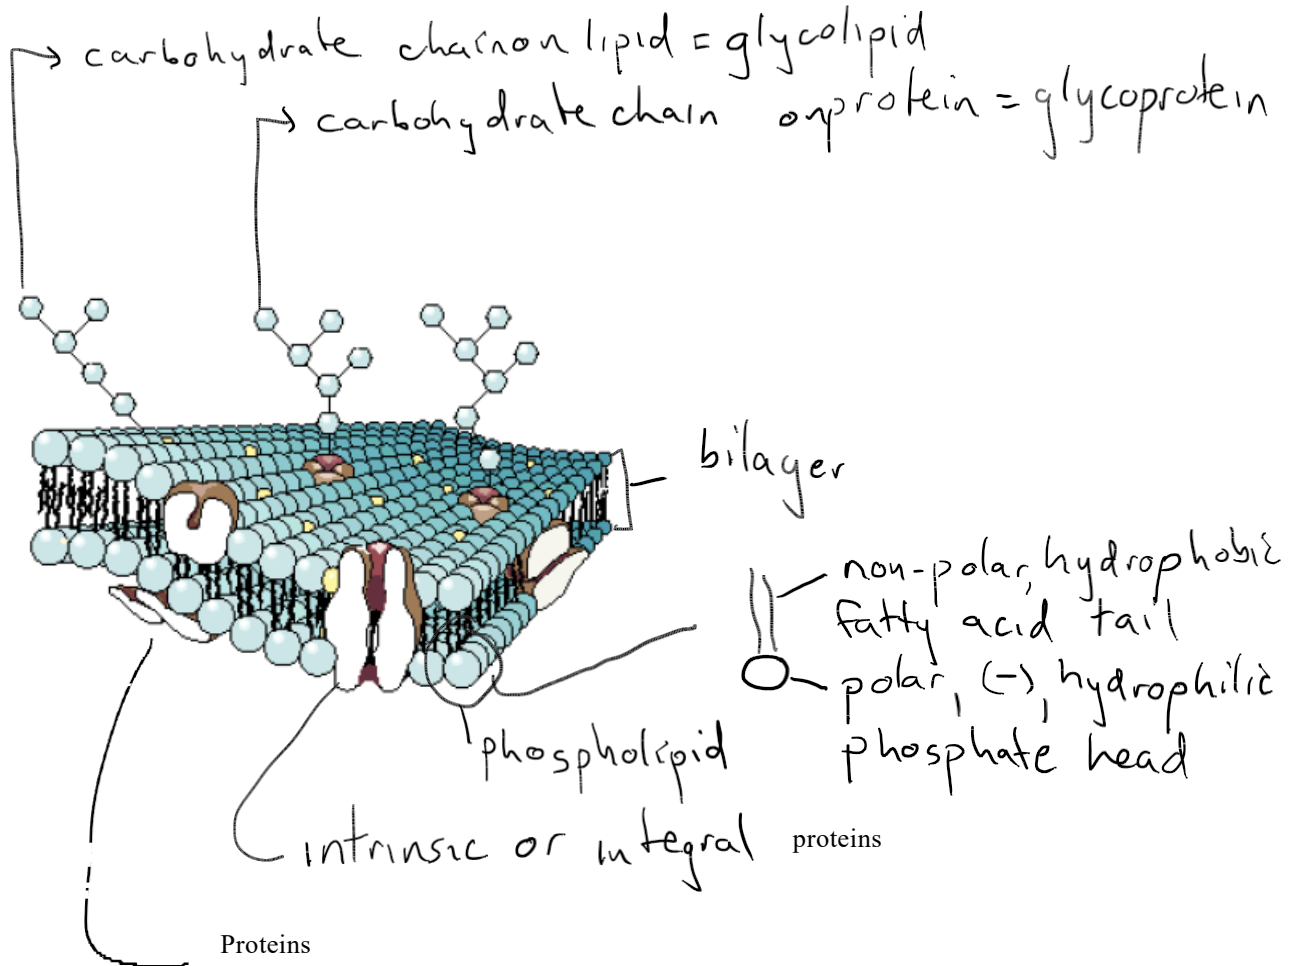 carbohydrate chainon lipid = glycolipid
carbohydrate chain onprotein = glycoprotein
bilayer
non-polar, hydrophobic
fatty acid tail
polar, (-), hydrophilic
phosphate head
phospholipid
intrinsic or integral proteins
Proteins